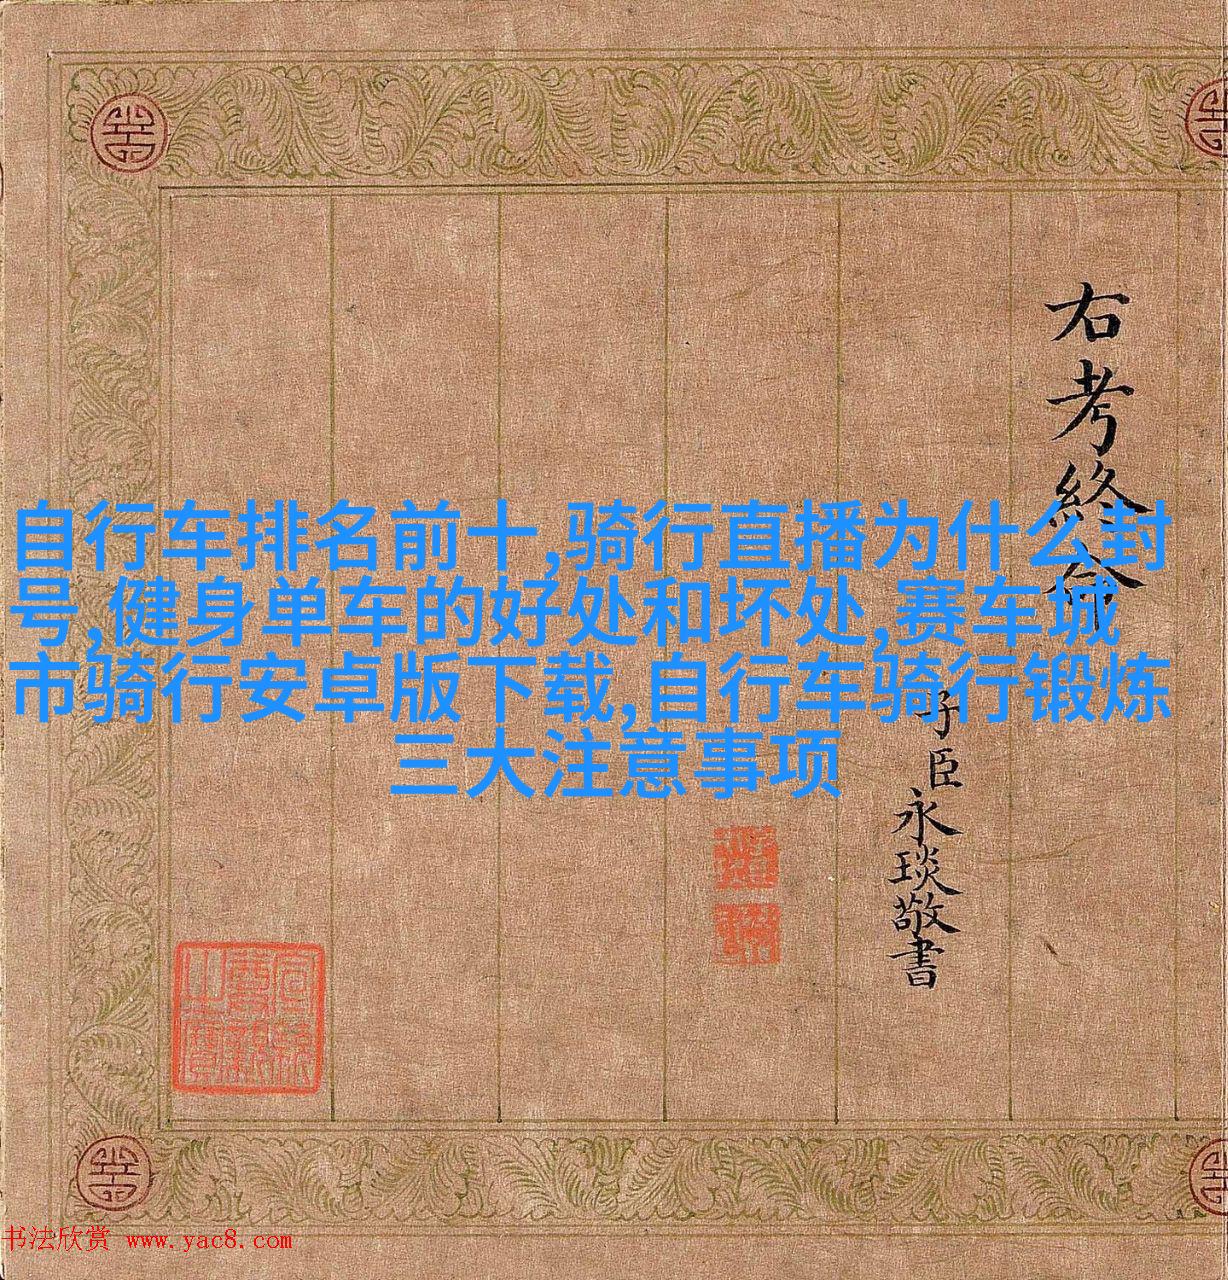 右考終命
子臣永琰敬書
自行车排名前十,骑行直播为什么封
号,健身单车的好处和坏处,赛车城
市骑行安卓版下载,自行车骑行锻炼
三大注意事项
书法欣赏 www.yac8.com